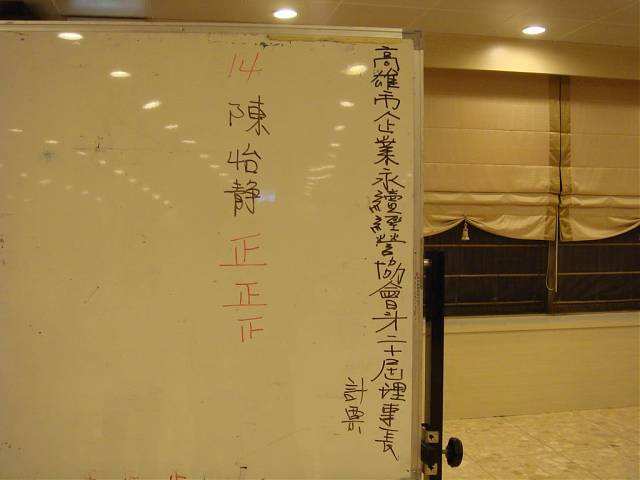 高雄市企業永續經營協會第二十屆理事長
計票
14
陳怡靜
正正正